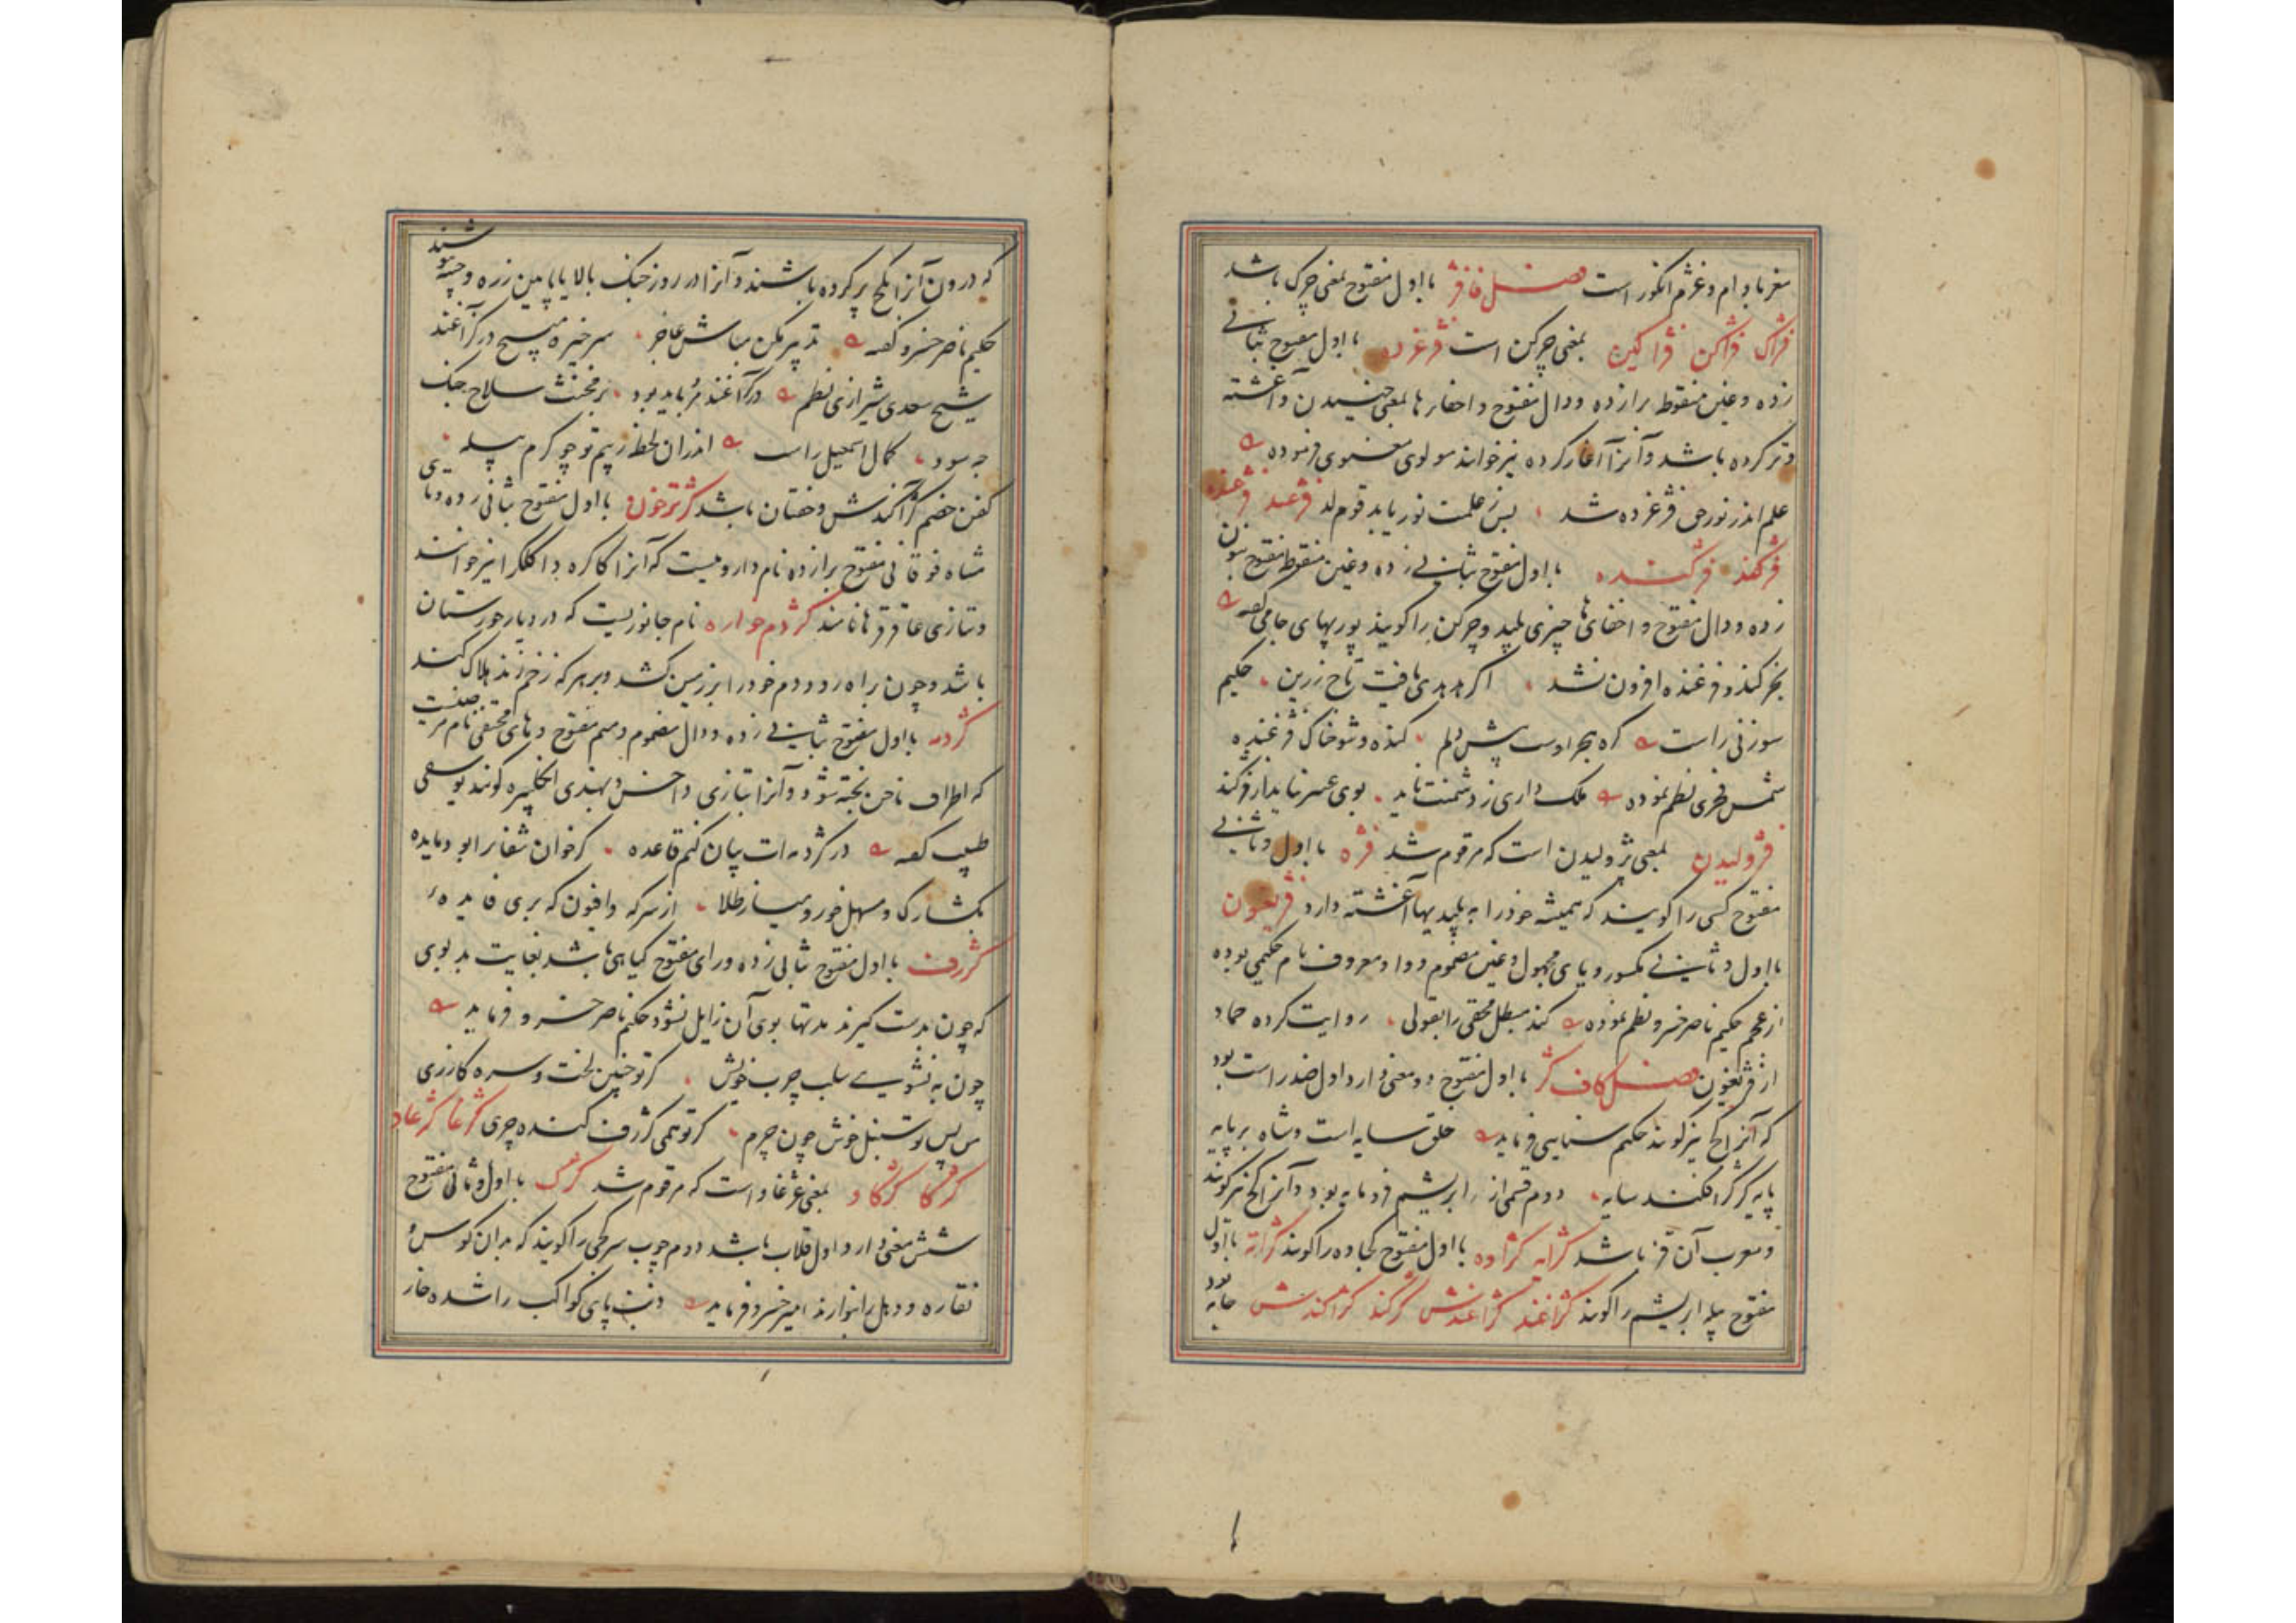 مغز بادام و غژم انگور است فصل فا فژ با اول مفتوح بمعنی چرک باشد
فژاک فژاکن فژاکین بمعنی چرکن است فژغرده با اول مفتوح بثانی
زده و غین منقوط برا زده و دال مفتوح و اخفا رها بمعنی خیسیدن و آغشته
و تر کرده باشد و آنرا آغار کرده نیز خوانند مولوی معنوی فرموده
علم اندر نور حق فژغرده شد پس ز علمت نور یابد قوم لد فژغند فژغنده
فژکند فژکنده با اول مفتوح بثانی زده و غین منقوط مفتوح بنون
زده و دال مفتوح و اخفای ها چیزی پلید و چرکن را گویند پوربهای جامی گفته
بخر گنده فژغنده افزون نشد اگر هدهدی یافت تاج زرین حکیم
سوزنی راست که بحر اوست پیش دلم گنده و شوخاک فژغنده
شمس فخری نظم نموده ملک داری ز دشمنت ناید بوی عنبر نیاید از فژکند
فژولیدن بمعنی پژولیدن است که مرقوم شد فژه با اول و ثانی
مفتوح کسی را گویند که همیشه خود را به پلیدیها آغشته دارد فژیغون
با اول و ثانی مکسور و یای مجهول و غین مضموم و واو معروف نام حکیمی بوده
از عجم حکیم ناصر خسرو نظم نموده کند مبطل محقی را بقولی روایت کرده حماد
از فژیغون فصل کاف کژ با اول مفتوح دو معنی دارد اول ضد راست بود
که آنرا کج نیز گویند حکیم سنایی فرماید خلق سایه است و شاه بر پایه
پایه کژ کژ افکند سایه دوم قسمی از ابریشم فرومایه بود و آنرا کج نیز گویند
و معرب آن قز باشد کژابه کژاوه با اول مفتوح کجاوه را گویند کژاته با اول
مفتوح پیله ابریشم را گویند کژاغند کژاغندش کژکند کژاکندش جامه بود
که درون آنرا بکج پر کرده باشند و آنرا در روز جنگ بالا یا پایین زره و جبه پوشند
حکیم ناصر خسرو گفته تدبیر بکن مباش عاجز سر خیره مپیچ در کژاغند
شیخ سعدی شیرازی نظم در کژاغند مرد باید بود بر مخنث سلاح جنگ
چه سود کمال اسمعیل راست اندران لحظه ز بیم تو چو کرم پیله
کفن خصم کژاکندش و خفتان باشد کژترخون با اول مفتوح بثانی زده و تا
مثناه فوقانی مفتوح برا زده نام داروییست که آنرا کاکره و اکلکرا نیز خوانند
و بتازی عاقرقرحا نامند کژدم خواره نام جانوریست که در دیار خوزستان
باشد و چون براه رود دم خود را بر زمین کشد و بر هر که زخم زند هلاک کند
کژدمه با اول مفتوح بثانی زده و دال مضموم و میم مفتوح و های مختفی نام مرضیست
که اطراف ناخن پخته شود و آنرا بتازی داحس و بهندی انگلپیره گویند یوسفی
طبیب گفته در کژدمه ات بیان کنم قاعده کز خوان شفا ترا بود مایده
بگشا رگ و مسهل خور و میساز طلا از سرکه و افیون که بری فایده
کژرف با اول مفتوح بثانی زده و رای مفتوح گیاهی باشد بغایت بدبوی
که چون بدست گیرند مدتها بوی آن زایل نشود حکیم ناصر خسرو فرماید
چون به نشوی سلب چرب خویش گر تو چنین لخت و سره گازری
من پس تو سنبل خوش چون چرم گر تو همی کژرف گنده چری کژغا کژغاو
کژگا کژگاو بمعنی غژغاو است که مرقوم شد کژک با اول و ثانی مفتوح
شش معنی دارد اول قلاب باشد دوم چوب سر کجی را گویند که بدان کوس و
نقاره و دهل را نوازند امیر خسرو فرماید دنب پای کواکب را شده خار